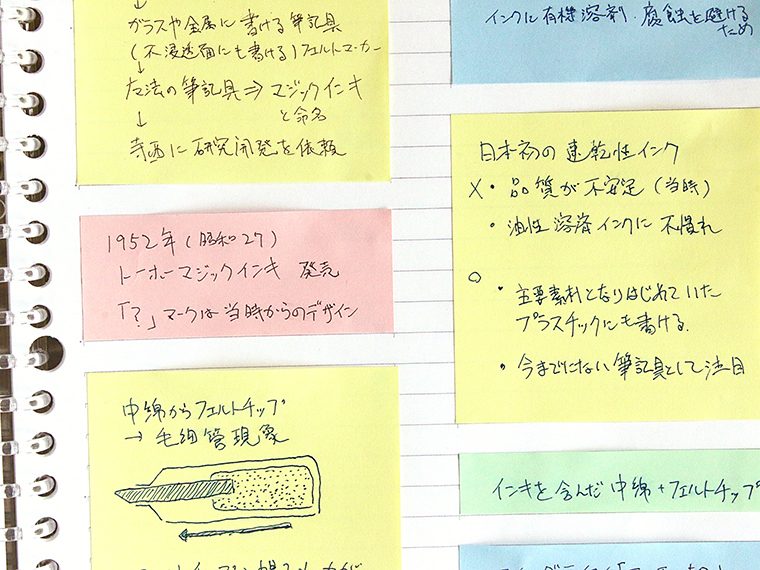 ↓
ガラスや金属に書ける筆記具
(不浸透面にも書ける)フェルトマーカー
↓
方法の筆記具⇒マジックインキ
と命名
↓
寺西に研究開発を依頼
1952年(昭和27)
トーホーマジックインキ 発売
「?」マークは当時からのデザイン
中綿からフェルトチップ
→毛細管現象
インクに有機溶剤・腐蝕を避ける
ため
日本初の速乾性インク
X・品質が不安定(当時)
・油性溶済インクに不慣れ
○
・主要素材となりはじめていた
プラスチックにも書ける.
・今までにない筆記具として注目
インキを含んだ中綿+フェルトチップ